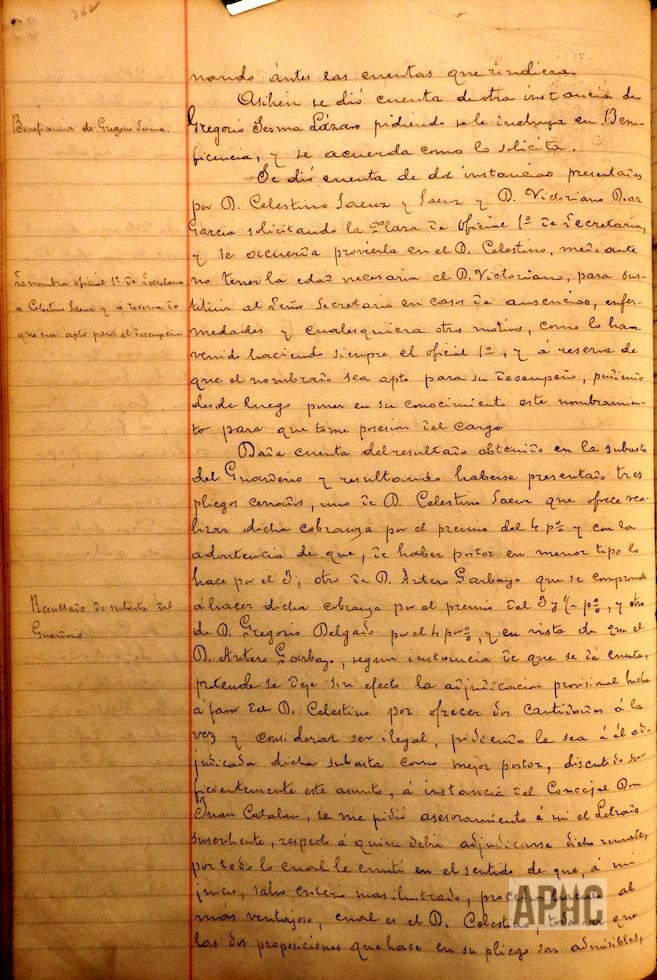 nando ántes las cuentas que rindiera.
Asihen se dió cuenta de otra instancia de
Beneficiencia de Gregorio Lerma.
Gregorio Lerma Lázaro pidiendo se le incluya en Bene-
ficencia, y se acuerda como lo solicita.
Se dió cuenta de dos instancias presentadas
por D. Celestino Saenz y Saenz y D. Victoriano Diaz
Garcia solicitando la plaza de Oficial 1º de Secretaria,
y se acuerda proveerla en el D. Celestino, mediante
Se nombra oficial 1º de Secretaria
no tener la edad necesaria el D. Victoriano, para sus-
a Celestino Saenz y a reserva de
tituir al Señor Secretario en casos de ausencias, enfer-
que sea apto para el desempeño
medades y cualesquiera otros motivos, como lo han
venido haciendo siempre el oficial 1º, y á reserva de
que el nombrado sea apto para su desempeño, pudiendo
desde luego poner en su conocimiento este nombramien-
to para que tome posesion del cargo
Dada cuenta del resultado obtenido en la subasta
del Guarderio y resultando haberse presentado tres
pliegos cerrados, uno de D. Celestino Saenz que ofrece rea-
lizar dicha cobranza por el premio del 4 pº y con la
advertencia de que, de haber postor en menor tipo lo
hace por el 3, otro de D. Antero Garbayo que se compromete
Resultado de subasta del
á hacer dicha cobranza por el premio del 3 y pº, y otro
Guarderio
de D. Gregorio Delgado por el 4 por º, y en vista de que el
D. Antero Garbayo, segun instancia de que se dá cuenta,
pretende se deje sin efecto la adjudicacion provisional hecha
á favor del D. Celestino por ofrecer dos cantidades á la
vez y considerar ser ilegal, pidiendo le sea á él ad-
judicada dicha subasta como mejor postor, discutido su-
ficientemente este asunto, á instancia del Concejal Don
Juan Catalan, se me pidió asesoramiento á mi el Letrado
suscribente, respecto á quien debia adjudicarse dicho remate,
por todo lo cual le emití en el sentido de que, á mi
juicio, salvo criterio mas ilustrado, procedia hacerlo al
más ventajoso, cual es el D. Celestino, toda vez que
las dos proposiciones que hace en su pliego son admisibles,
APHC